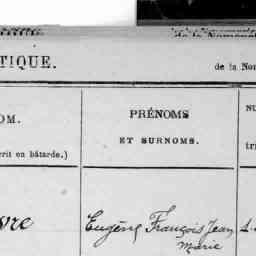 TIQUE.
de la Nom
OM.
PRÉNOMS
ET SURNOMS.
NU
rit en bâtarde.)
tri
vre
Eugène François Jean
Marie